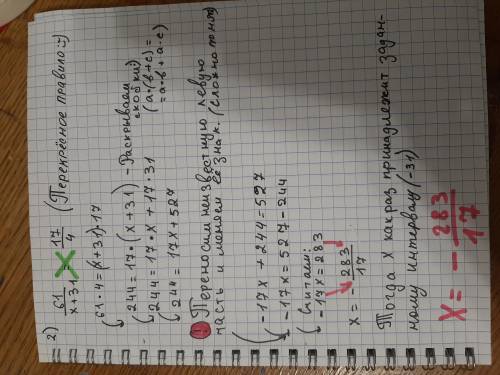 2) 61/x+31 = 17/4 (Перекрёсное правило :-))
61·4=(x+31)·17
244=17·(x+31) - Раскрываем скобки)
244=17·x+17·31 (a·(b+c)=
244=17x+527 =a·b+a·c)
Переносим неизвестную левую
часть и меняем её знак. (сложно понят)
-17x+244=527
-17x=527-244
Считаем:
-17x=283
x=-283/17
Тогда x как раз принадлежит задан-
ному интервалу (-31)
x=-283/17